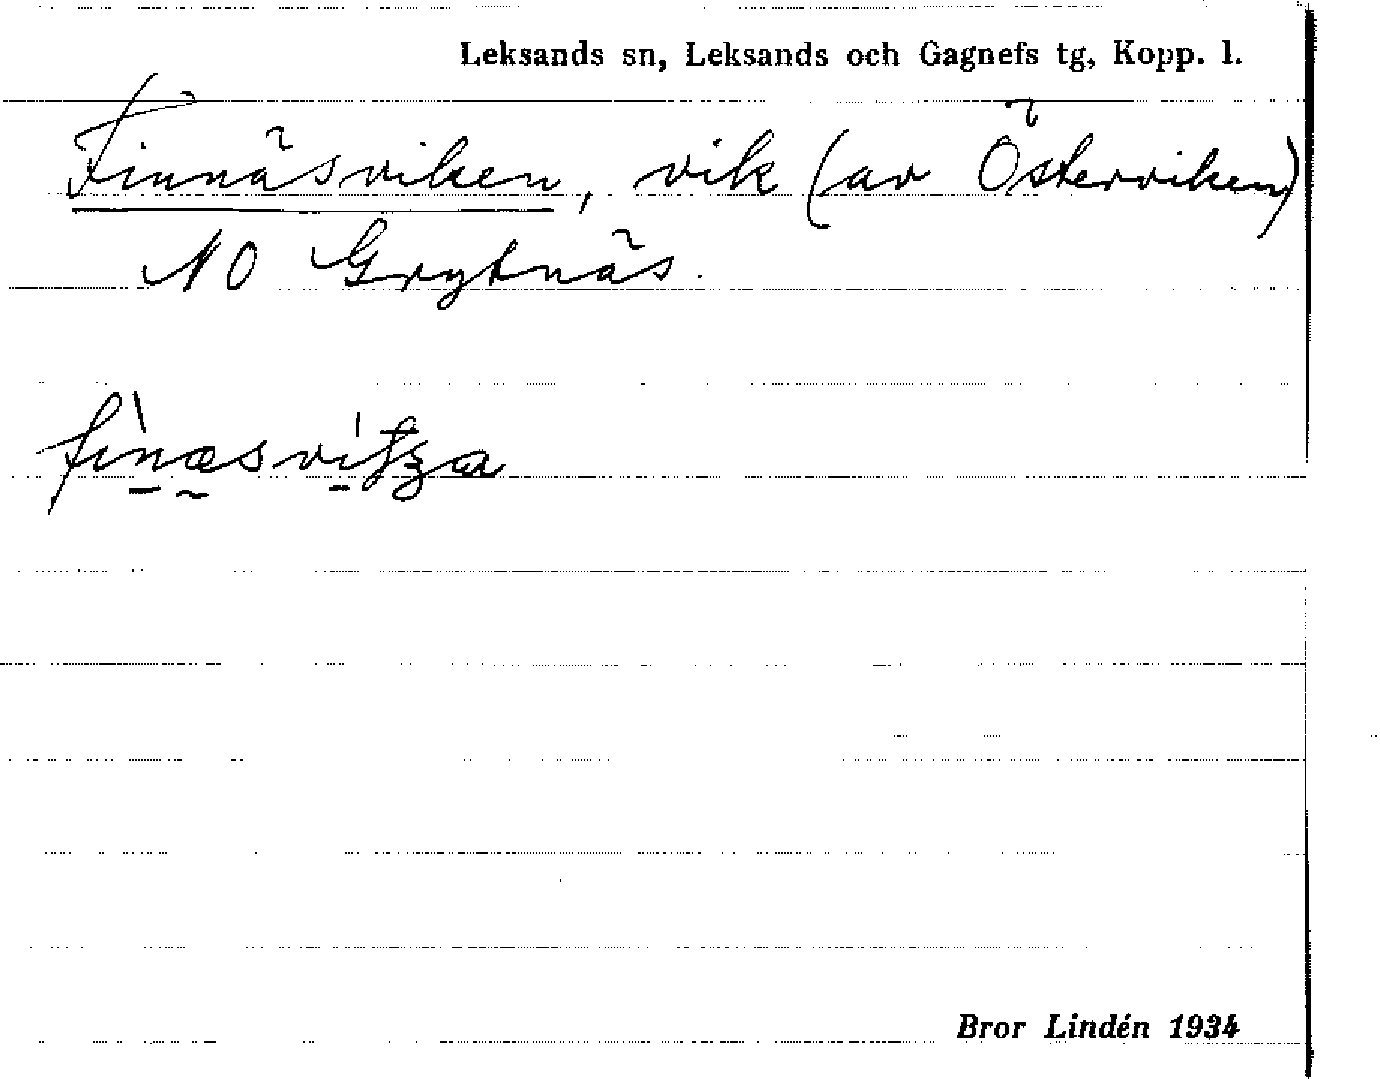 Leksands sn, Leksands och Gagnefs tg, Kopp. l.
Finnäsviken, vik (av Österviken)
NO Grytnäs.
Bror Lindén 1934